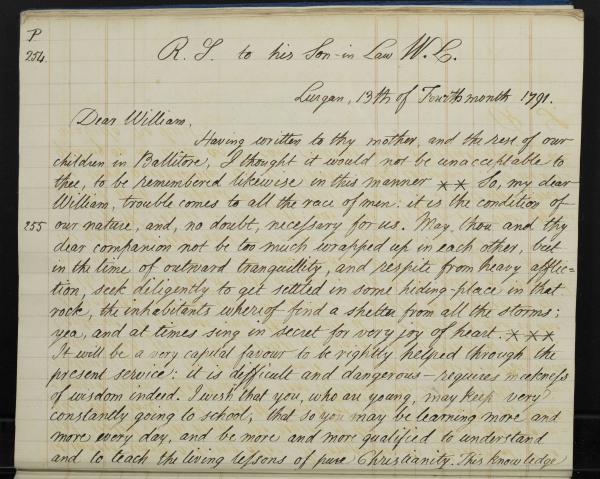 P
254
R. S. to his Son-in Law W. L.
Lurgan, 13th of Fourth month 1791.
Dear William.
Having written to thy mother, and the rest of our
children in Ballitore, I thought it would not be unacceptable to
thee, to be remembered likewise in this manner x x So, my dear
William, trouble comes to all the race of men: it is the condition of
255 our nature, and, no doubt, necessary for us. May, thou and thy
dear companion not be too much wrapped up in each other, but
in the time of outward tranquillity, and respite from heavy afflic=
tion, seek diligently to get settled in some hiding-place in that
rock, the inhabitants whereof find a shelter from all the storms;
yea, and at times sing in secret for very joy of heart. x x x
It will be a very capital favour to be rightly helped through the
present service: it is difficult and dangerous - requires meekness
of wisdom indeed. I wish that you, who are young, may keep very
constantly going to school; that so you may be learning more and
more every day, and be more and more qualified to understand
and to teach the living lessons of pure Christianity. This knowledge